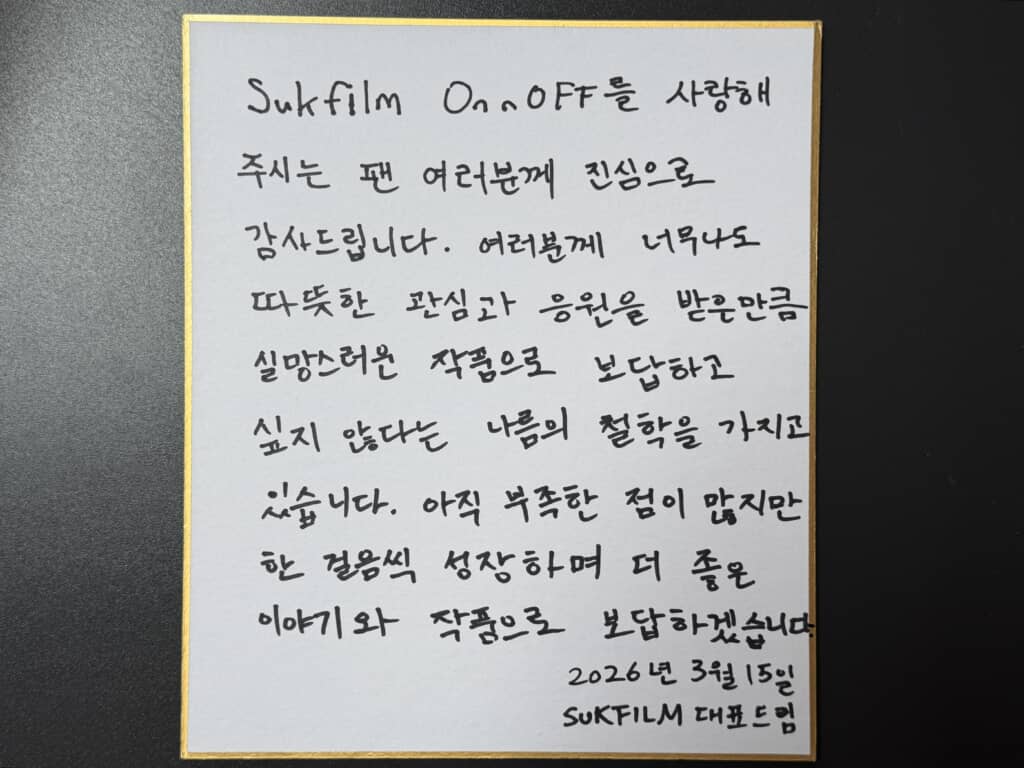 Sukfilm OnnOFF를 사랑해
주시는 팬 여러분께 진심으로
감사드립니다. 여러분께 너무나도
따뜻한 관심과 응원을 받은만큼
실망스러운 작품으로 보답하고
싶지 않다는 나름의 철학을 가지고
있습니다. 아직 부족한 점이 많지만
한 걸음씩 성장하며 더 좋은
이야기와 작품으로 보답하겠습니다
2026년 3월 15일
SUKFILM 대표드림